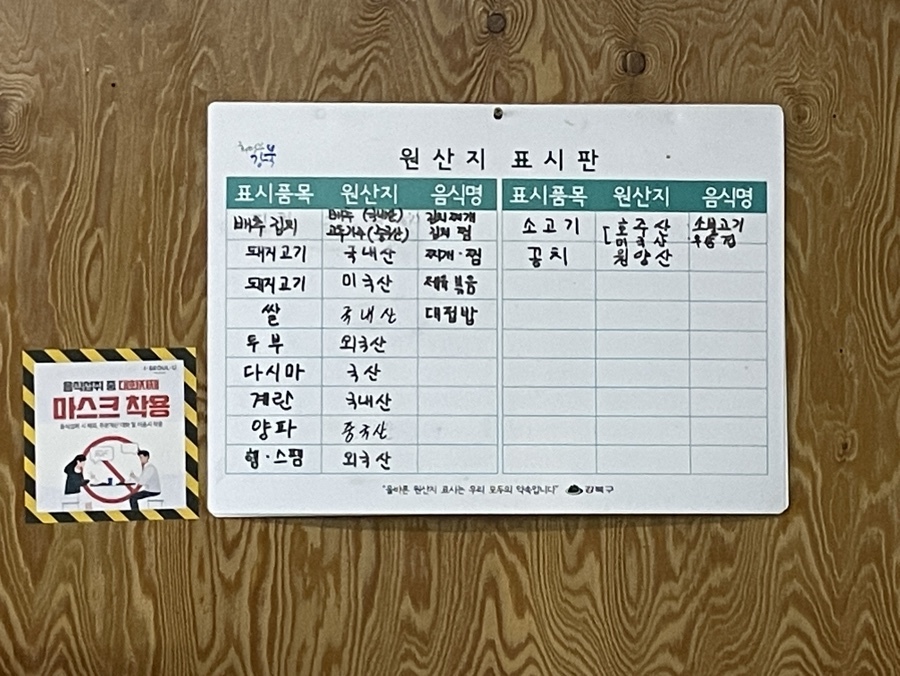 강북
원산지 표시판
표시품목 원산지 음식명 표시품목 원산지 음식명
배추김치 배추 (국내산) 김치찌개
고추가루 (중국산) 김치찜
돼지고기 국내산 찌개·찜
돼지고기 미국산 제육볶음
쌀 국내산 대접밥
두부 외국산
다시마 국산
계란 국내산
양파 중국산
햄·스팸 외국산
소고기 호주산 소불고기
미국산
꽁치 원양산
"올바른 원산지 표시는 우리 모두의 약속입니다" 강북구
I·SEOUL·U
음식섭취 중 대화자제
마스크 착용